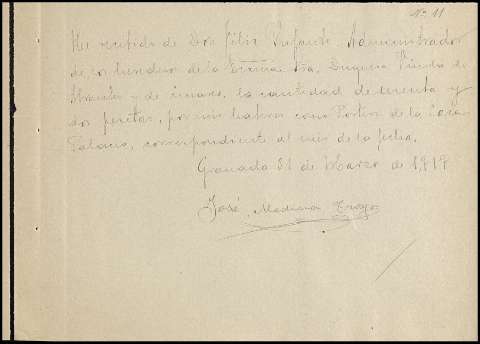 Nº 11
He recibido de Don Félix Infante, Administrador
de los herederos de la Excma. Sra. Duquesa Viuda de
Abrantes y de Linares, la cantidad de y
dos pesetas, por mis haberes como Portero de la Casa
Palacio, correspondiente al mes de la fecha.
Granada 31 de Marzo de 1919
José Medina Trojo